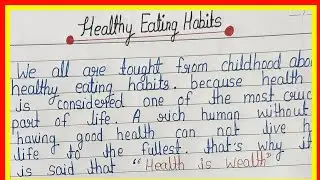 Healthy Eating Habits
We all are tought from childhood abou
healthy eating habits. because health
is considered one of the most cruc
part of life. A rich human without
having good health can not live h
life to the fullest. that's why it
is said that "Health is Wealth"